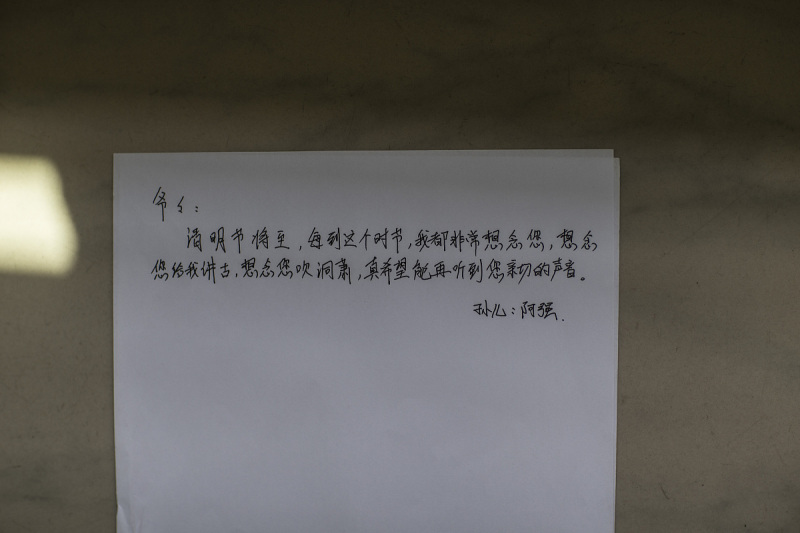 爷々：
清明节将至，每到这个时节，我都非常想念您，想念
您给我讲古，想念您吹洞萧，真希望能再听到您亲切的声音。
孙儿：阿强.